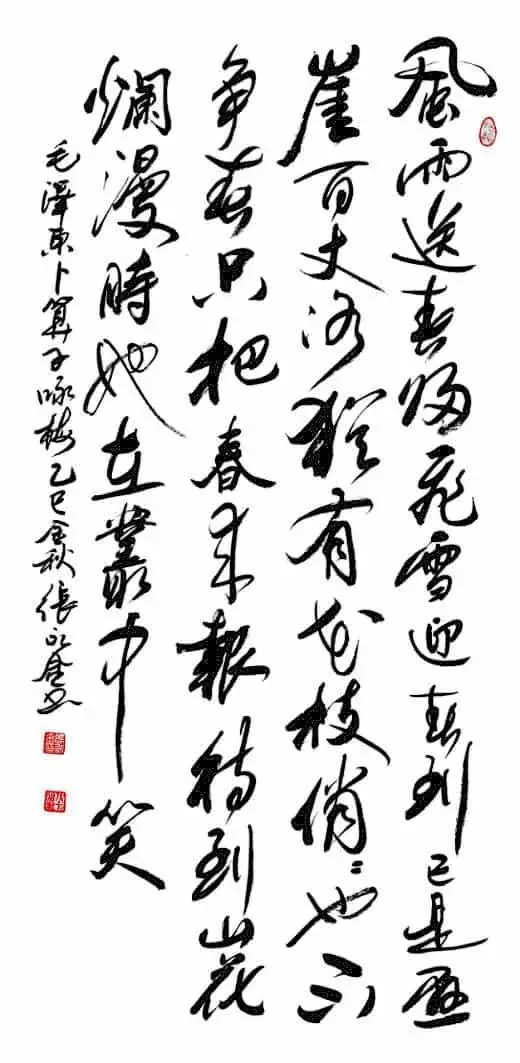 風雨送春歸飛雪迎春到已是懸
崖百丈冰猶有花枝俏〻也不
争春只把春来報待到山花
爛漫時她在叢中笑
毛澤東卜算子咏梅乙巳金秋張永书